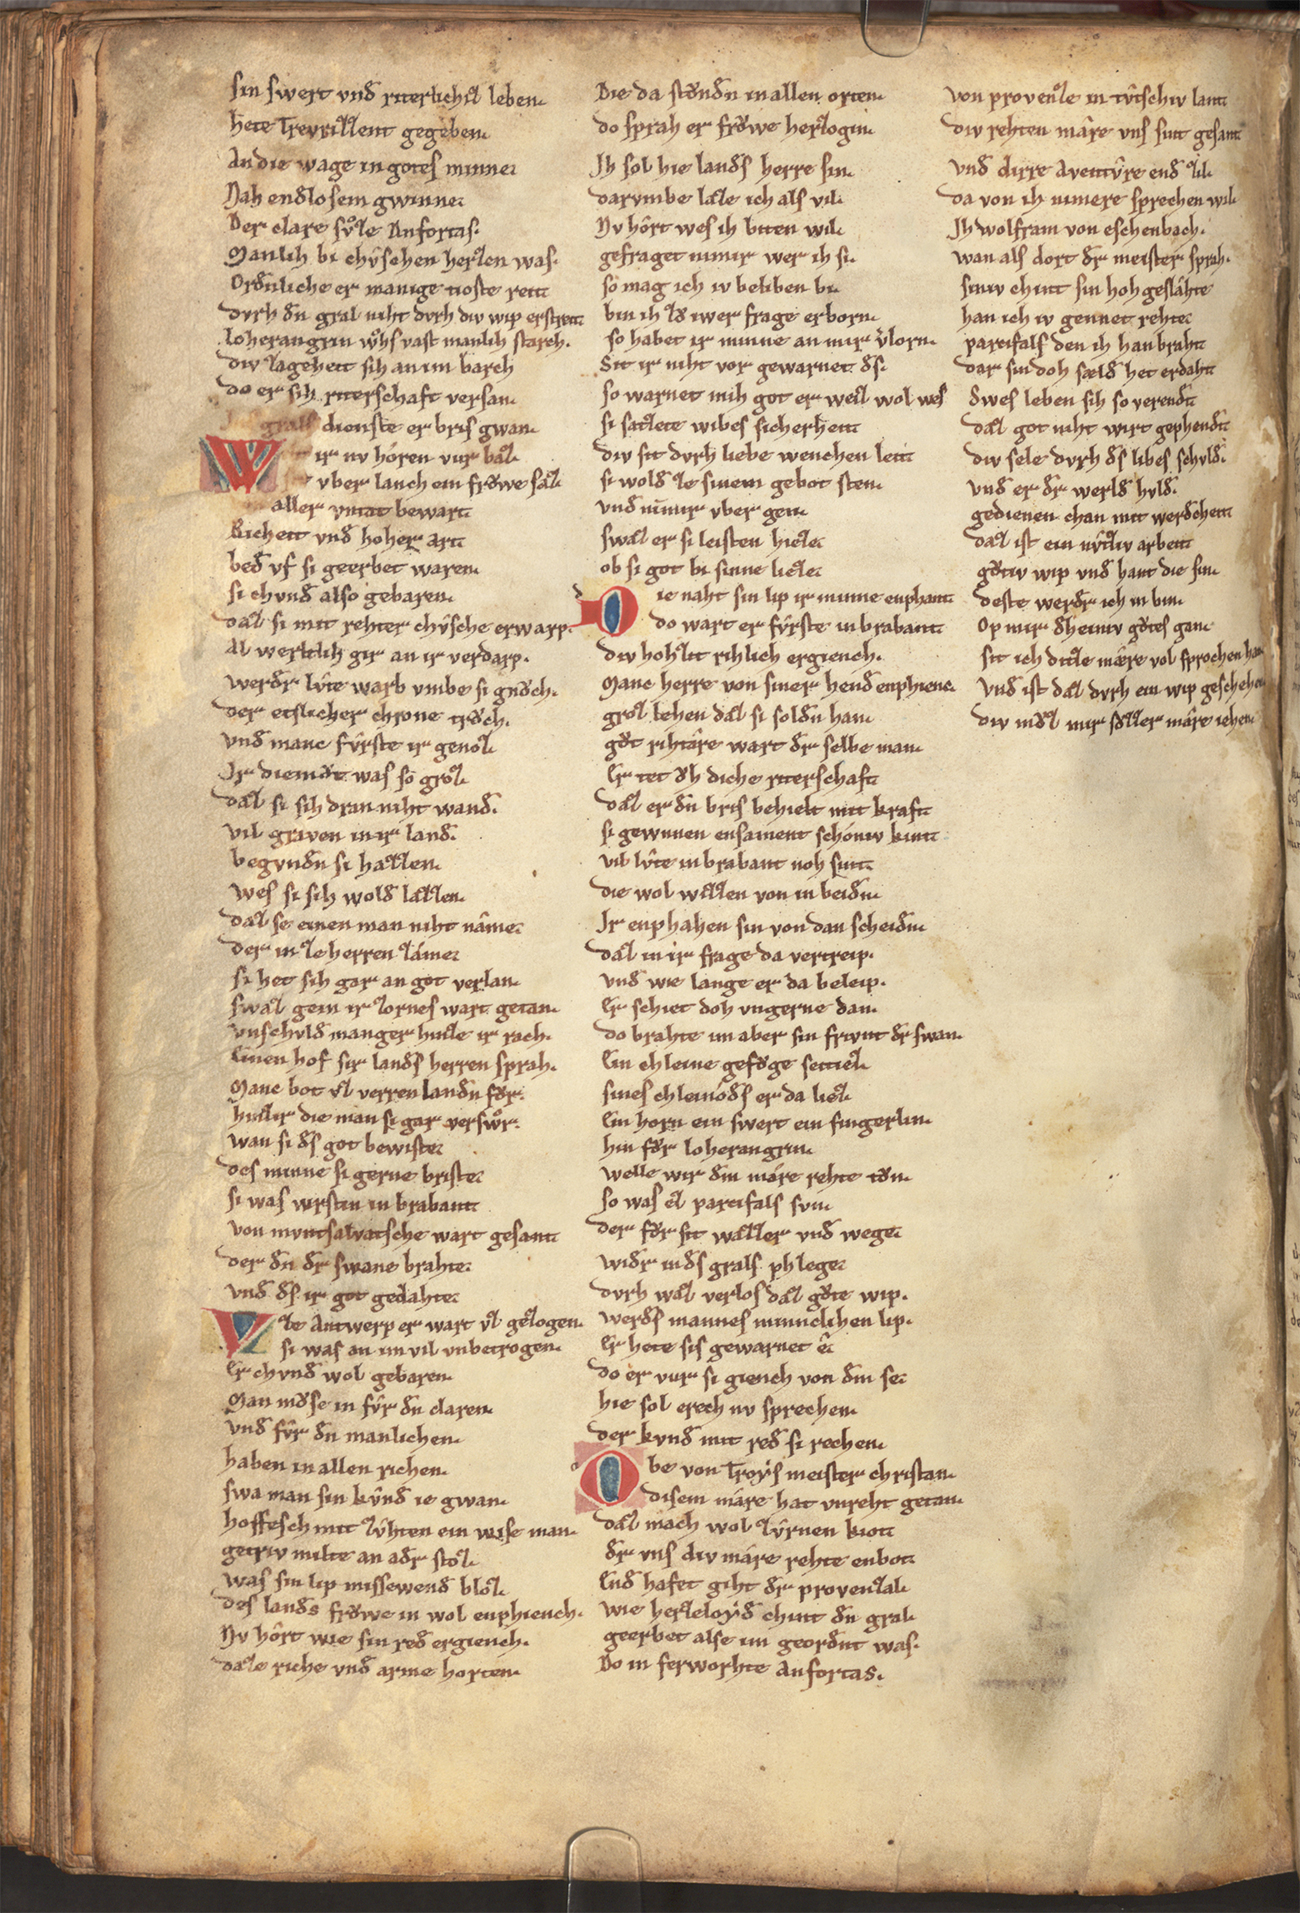 sin swert vnd riterlichiz leben.
hete Trevrizzent gegeben.
An die wage in gotes minne.
Nah endlosem gwinne.
Der clare sůze Anfortas.
Manlih bi chûschen herzen was.
Ordnliche er manige tioste reit.
dvrh dn gral niht dvrh div wip er streit.
loherangrin wůhs vast manlih starch.
div zageheit sih an im barch.
do er sih riterschaft versan.
grals dienste er bris gwan.
W ir nv hören vur baz.
vber lanch ein fröwe saz.
aller vntat bewart.
Richeit vnd hoher art.
bed vf si geerbet waren.
si chvnd also gebaren.
daz si mit rehter chûsche erwarp.
Al werltlih gir an ir verdarp.
werdr lûte warb vmbe si gnöch.
der etslicher chrone tröch.
vnd manc fûrste ir genoz.
Jr diemöt was so groz.
daz si sih dran niht wand.
vil graven in ir land.
begvndn si hazzen.
wes si sih wold lazzen.
daz se einen man niht nâme.
der in ze herren zâme.
si het sih gar an got verlan.
swaz gein ir zornes wart getan.
vnschvld manger hinze ir rach.
Einen hof sir lands herren sprah.
Manc bot vz verren landn för.
hinz ir die man si gar verswör.
wan si ds got bewiste.
des minne si gerne briste.
si was virstin in brabant.
von mvntsalvatsche wart gesant.
der dn dr swane brahte.
vnd ds ir got gedahte.
V ze Antwerp er wart vz gezogen.
si was an im vil vnbetrogen.
Er chvnd wol gebaren.
Man möse in fûr dn claren.
vnd fûr dn manlichen.
haben in allen richen.
swa man sin kûnd ie gwan.
hoffesch mit zûhten ein wise man.
getriv milte an adr stoz.
was sin lip missewend bloz.
des lands fröwe in wol enphiench.
Nv hört wie sin red ergiench.
daze riche vnd arme horten.
Die da stöndn in allen orten.
do sprah er fröwe herzogin.
Jh sol hie lands herre sin.
darvmbe laze ich als vil.
Nv hört wes ih biten wil.
gefraget nimir wer ih si.
so mag ich iv beliben bi.
bin ih zö iwer frage erborn.
so habet ir minne an mir vlorn.
Sit ir niht vor gewarnet ds.
so warnet mih got er weiz wol wes.
si satzete wibes sicherheit.
div sit dvrh liebe wenchen leit.
si wold ze sinem gebot sten.
vnd nimir vber gen.
swaz er si leisten hieze.
ob si got bi sinne lieze.
D ie naht sin lip ir minne enphant.
do wart er fûrste in brabant.
div hohzit rihlich ergiench.
Manc herre von siner hend enphienc.
groz lehen daz si soldn han.
göt rihtâre wart dr selbe man.
Er tet öh diche riterschaft.
daz er dn bris behielt mit kraft.
si gewnnen ensament schöniv kint.
vil lûte in brabant noh sint.
die wol wizzen von in beidn.
Jr enphahen sin von dan scheidn.
daz in ir frage da vertreip.
vnd wie lange er da beleip.
Er schiet doh vngerne dan.
do brahte im aber sin frivnt dr swan.
Ein chleine geföge seitiez.
sines chleinöds er da liez.
Ein horn ein swert ein fingerlin.
hin för loherangrin.
welle wir dm mâre rehte tön.
so was ez parcifals svn.
der för sit wazzer vnd wege.
widr in ds grals phlege.
dvrh waz verlos daz göte wip.
werds mannes minnclichen lip.
Er hete sis gewarnet ê.
do er vur si giench von dm se.
hie sol erech nv sprechen.
der kvnd mit red si rechen.
O be von Troys meister christan.
disem mâre hat vnreht getan.
daz mach wol zûrnen kiot.
dr vns div mâre rehte enbot.
End hafet giht dr provenzal.
wie herzeloyd chint dn gral.
geerbet alse im geordnt was.
Do in ferworhte Anfortas.
von provenze in tûtschiv lant.
div rehten mâre vns sint gesant.
vnd dirre Aventûre end zil.
da von ih nimere sprechen wil.
Jh wolfram von eschenbach.
wan als dort dr meister sprah.
siniv chint sin hoh geslâhte.
han ich iv gennet rehte.
parcifals den ih han braht.
dar sin doh sæld het erdaht.
Swes leben sih so verendt.
daz got niht wirt gephendt.
div sele dvrh ds libes schvld.
vnd er dr werld hvld.
gedienen chan mit werdcheit.
daz ist ein nûtziv arbeit.
götiv wip vnd hant die sin.
deste werdr ich in bin.
Op mir dheiniv götes gan.
sit ich ditze mære vol sprochen han
vnd ist daz dvrh ein wip geschehen
div möz mir sözzer mâre iehen.